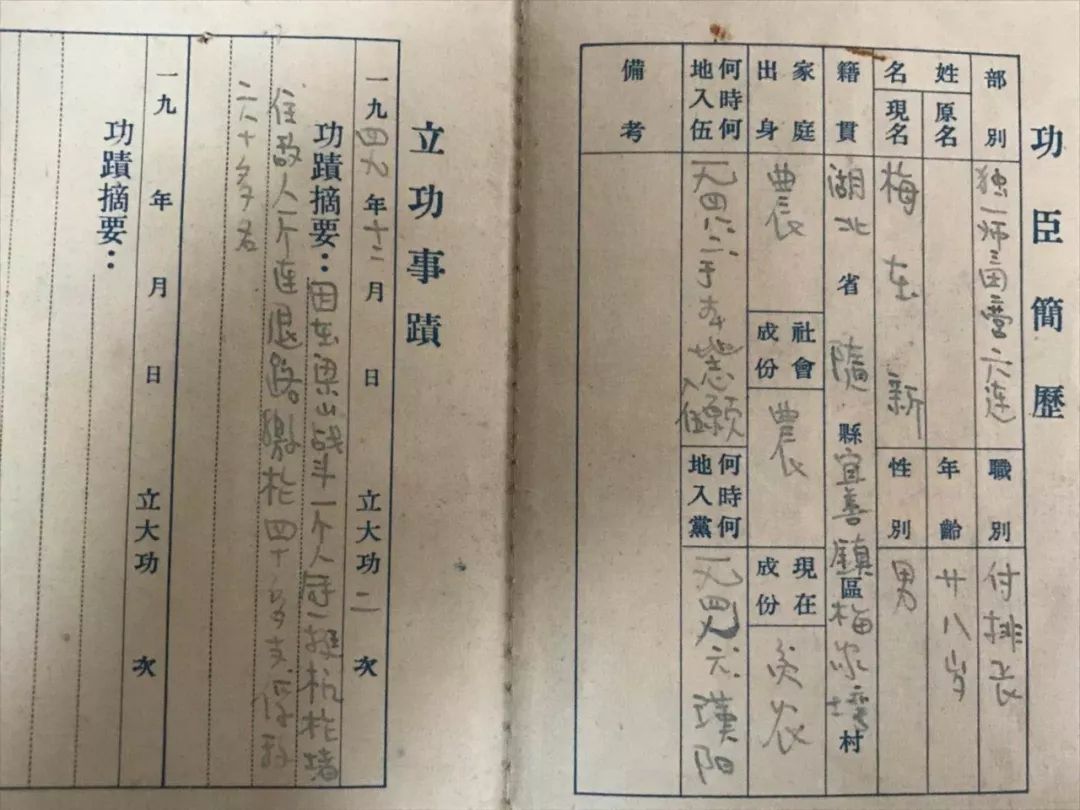 功臣簡歷
部別 独一师 營六连 職別 付排长
姓名 原名 年齡 廿八岁
現名 梅在新 性別 男
籍貫 湖北省隨縣宜善鎮區梅家塆村
家庭出身 農 社會成份 農 現在成份 贫农
何時何地入伍 一九四八 于本地志愿入伍 何時何地入黨 一九四九 六 漢阳
備考
立功事蹟
一九四九年十二月 日 立大功二次
功蹟摘要：因在梁山战斗一个人 一挺机枪堵
住敌人一个连退路缴枪四十多支俘敌
十多名
一九 年 月 日 立大功 次
功蹟摘要：